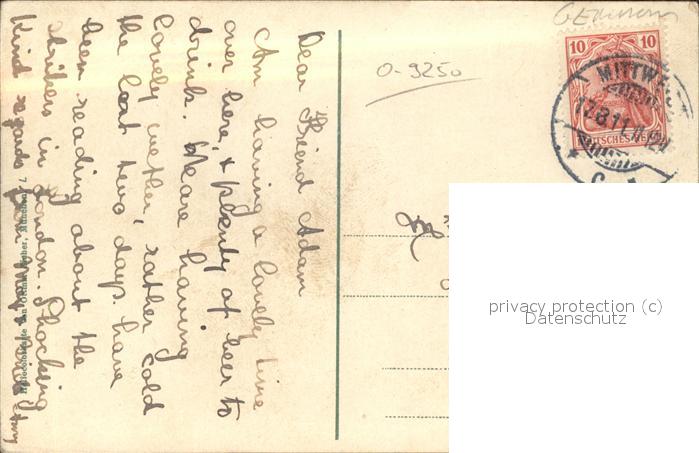 Dear Friend Adam
Am having a lovely time
over here, & plenty of beer to
drink. We are having
lovely wether, rather cold
the last two days. have
been reading about the
strikers in London. Shocking
Kind regards from
Germany
0-9250
10 10
MITTW
17.8.11.
DEUTSCHES REICH
privacy protection (c)
Datenschutz